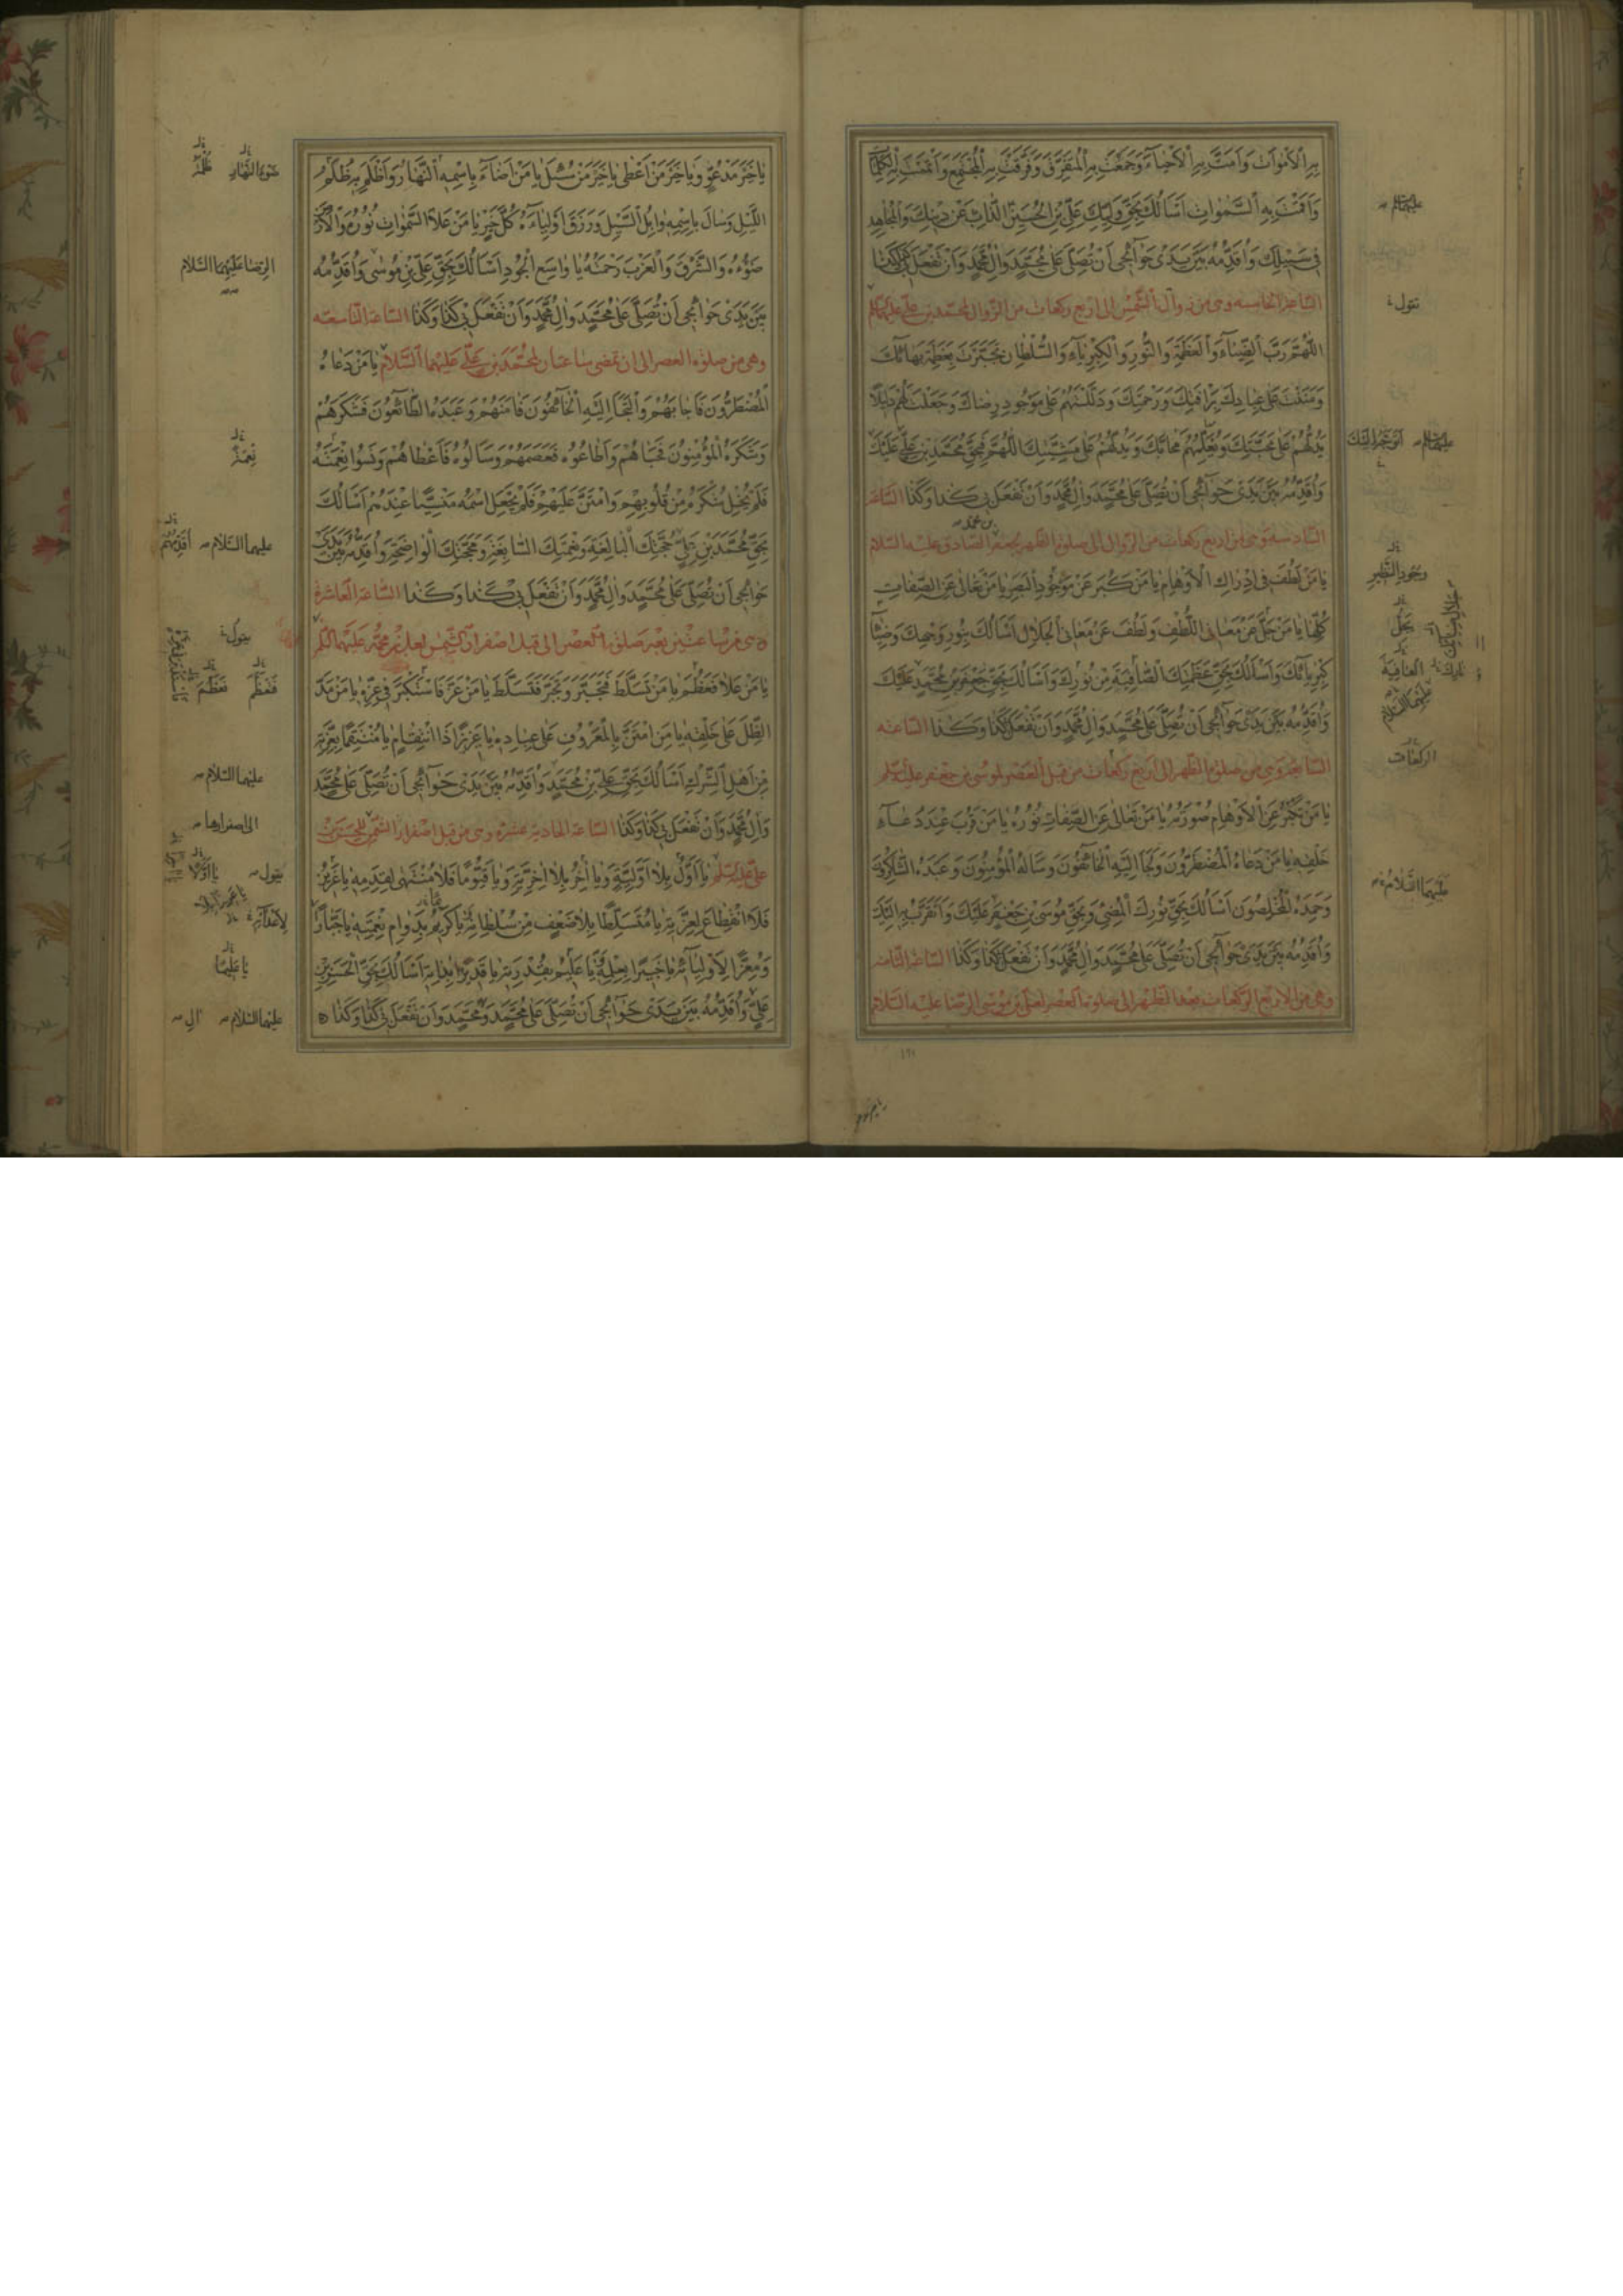 بِهِ الْأَمْوَاتَ وَأَمَتَّ بِهِ الْأَحْيَاءَ وَجَمَعْتَ بِهِ الْمُتَفَرِّقَ وَفَرَّقْتَ بِهِ الْمُجْتَمِعَ وَأَتْمَمْتَ بِهِ الْكَلِمَاتِ
وَأَقَمْتَ بِهِ السَّمٰوَاتِ أَسْأَلُكَ بِحَقِّ وَلِيِّكَ عَلِيِّ بْنِ الْحُسَيْنِ الذَّابِّ عَنْ دِينِكَ وَالْمُجَاهِدِ
فِي سَبِيلِكَ وَأُقَدِّمُهُ بَيْنَ يَدَيْ حَوَائِجِي أَنْ تُصَلِّيَ عَلَى مُحَمَّدٍ وَآلِ مُحَمَّدٍ وَأَنْ تَفْعَلَ بِي كَذَا وَكَذَا
الساعة الخامسة وهي من زوال الشمس إلى أربع ركعات من الزوال لمحمد بن علي عليهما السلم
اللّٰهُمَّ رَبَّ الضِّيَاءِ وَالْعَظَمَةِ وَالنُّورِ وَالْكِبْرِيَاءِ وَالسُّلْطَانِ تَجَبَّرْتَ بِعَظَمَةِ بَهَائِكَ
وَمَنَنْتَ عَلَى عِبَادِكَ بِرَأْفَتِكَ وَرَحْمَتِكَ وَدَلَلْتَهُمْ عَلَى مَوْجُودِ رِضَاكَ وَجَعَلْتَ لَهُمْ دَلِيلًا
يَدُلُّهُمْ عَلَى مَحَبَّتِكَ وَيُعَلِّمُهُمْ مَحَابَّكَ وَيَدُلُّهُمْ عَلَى مَشِيَّتِكَ اللّٰهُمَّ فَبِحَقِّ مُحَمَّدِ بْنِ عَلِيٍّ عَلَيْكَ
وَأُقَدِّمُهُ بَيْنَ يَدَيْ حَوَائِجِي أَنْ تُصَلِّيَ عَلَى مُحَمَّدٍ وَآلِ مُحَمَّدٍ وَأَنْ تَفْعَلَ بِي كَذَا وَكَذَا الساعة
السادسة وهي من أربع ركعات من الزوال إلى صلوة الظهر لجعفر الصادق عليه السلام
يَا مَنْ لَطُفَ فِي إِدْرَاكِ الْأَوْهَامِ يَا مَنْ كَبُرَ عَنْ مَوْجُودِ الْبَصَرِ يَا مَنْ تَعَالَى عَنِ الصِّفَاتِ
كُلِّهَا يَا مَنْ جَلَّ عَنْ مَعَانِي اللُّطْفِ وَلَطُفَ عَنْ مَعَانِي الْجَلَالِ أَسْأَلُكَ بِنُورِ وَجْهِكَ وَضِيَاءِ
كِبْرِيَائِكَ وَأَسْأَلُكَ بِحَقِّ عَظَمَتِكَ الصَّافِيَةِ مِنْ نُورِكَ وَأَسْأَلُكَ بِحَقِّ جَعْفَرِ بْنِ مُحَمَّدٍ عَلَيْكَ
وَأُقَدِّمُهُ بَيْنَ يَدَيْ حَوَائِجِي أَنْ تُصَلِّيَ عَلَى مُحَمَّدٍ وَآلِ مُحَمَّدٍ وَأَنْ تَفْعَلَ بِي كَذَا وَكَذَا الساعة
السابعة وهي من صلوة الظهر إلى أربع ركعات من قبل العصر لموسى بن جعفر عليه السلم
يَا مَنْ تَكَبَّرَ عَنِ الْأَوْهَامِ صُورَتُهُ يَا مَنْ تَعَالَى عَنِ الصِّفَاتِ نُورُهُ يَا مَنْ قَرُبَ عِنْدَ دُعَاءِ
خَلْقِهِ يَا مَنْ دَعَاهُ الْمُضْطَرُّونَ وَلَجَأَ إِلَيْهِ الْخَائِفُونَ وَسَأَلَهُ الْمُؤْمِنُونَ وَعَبَدَهُ الشَّاكِرُونَ
وَحَمِدَهُ الْمُخْلِصُونَ أَسْأَلُكَ بِحَقِّ نُورِكَ الْمُضِيءِ وَبِحَقِّ مُوسَى بْنِ جَعْفَرٍ عَلَيْكَ وَأَتَقَرَّبُ بِهِ إِلَيْكَ
وَأُقَدِّمُهُ بَيْنَ يَدَيْ حَوَائِجِي أَنْ تُصَلِّيَ عَلَى مُحَمَّدٍ وَآلِ مُحَمَّدٍ وَأَنْ تَفْعَلَ بِي كَذَا وَكَذَا الساعة الثامنة
وهي من الأربع الركعات بعد الظهر إلى صلوة العصر لعلي بن موسى الرضا عليه السلام
عليهما السلم
تقول
عليهما السلم أتوجه إليك
وجود النظر
يجل
العافية
عليهما السلام
الركعات
عليهما السلام
يَا خَيْرَ مَدْعُوٍّ وَيَا خَيْرَ مَنْ أَعْطَى يَا خَيْرَ مَنْ سُئِلَ يَا مَنْ أَضَاءَ بِاسْمِهِ النَّهَارُ وَأَظْلَمَ بِهِ ظُلَمُ
اللَّيْلِ وَسَالَ بِاسْمِهِ وَابِلُ السَّيْلِ وَرَزَقَ أَوْلِيَاءَهُ كُلَّ خَيْرٍ يَا مَنْ عَلَا السَّمٰوَاتِ نُورُهُ وَالْأَرْضَ
ضَوْءُهُ وَالشَّرْقَ وَالْغَرْبَ رَحْمَتُهُ يَا وَاسِعَ الْجُودِ أَسْأَلُكَ بِحَقِّ عَلِيِّ بْنِ مُوسَى وَأُقَدِّمُهُ
بَيْنَ يَدَيْ حَوَائِجِي أَنْ تُصَلِّيَ عَلَى مُحَمَّدٍ وَآلِ مُحَمَّدٍ وَأَنْ تَفْعَلَ بِي كَذَا وَكَذَا الساعة التاسعة
وهي من صلوة العصر إلى ان تمضي ساعتان لمحمد بن علي عليهما السلام يَا مَنْ دَعَاهُ
الْمُضْطَرُّونَ فَأَجَابَهُمْ وَالْتَجَأَ إِلَيْهِ الْخَائِفُونَ فَآمَنَهُمْ وَعَبَدَهُ الطَّائِعُونَ فَشَكَرَهُمْ
وَشَكَرَهُ الْمُؤْمِنُونَ فَحَبَاهُمْ وَأَطَاعُوهُ فَعَصَمَهُمْ وَسَأَلُوهُ فَأَعْطَاهُمْ وَنَسُوا نِعْمَتَهُ
فَلَمْ يُخْلِ شُكْرَهُ مِنْ قُلُوبِهِمْ وَامْتَنَّ عَلَيْهِمْ فَلَمْ يَجْعَلِ اسْمَهُ مَنْسِيًّا عِنْدَهُمْ أَسْأَلُكَ
بِحَقِّ مُحَمَّدِ بْنِ عَلِيٍّ حُجَّتِكَ الْبَالِغَةِ وَنِعْمَتِكَ السَّابِغَةِ وَمَحَجَّتِكَ الْوَاضِحَةِ وَأُقَدِّمُهُ بَيْنَ يَدَيْ
حَوَائِجِي أَنْ تُصَلِّيَ عَلَى مُحَمَّدٍ وَآلِ مُحَمَّدٍ وَأَنْ تَفْعَلَ بِي كَذَا وَكَذَا الساعة العاشرة
وهي من ساعتين بعد صلوة العصر إلى قبل اصفرار الشمس لعلي بن محمد عليهما السلم
يَا مَنْ عَلَا فَعَظُمَ يَا مَنْ تَسَلَّطَ فَتَجَبَّرَ وَتَجَبَّرَ فَتَسَلَّطَ يَا مَنْ عَزَّ فَاسْتَكْبَرَ فِي عِزِّهِ يَا مَنْ مَدَّ
الظِّلَّ عَلَى خَلْقِهِ يَا مَنِ امْتَنَّ بِالْمَعْرُوفِ عَلَى عِبَادِهِ يَا عَزِيزًا ذَا انْتِقَامٍ يَا مُنْتَقِمًا بِعِزَّتِهِ
مِنْ أَهْلِ الشِّرْكِ أَسْأَلُكَ بِحَقِّ عَلِيِّ بْنِ مُحَمَّدٍ وَأُقَدِّمُهُ بَيْنَ يَدَيْ حَوَائِجِي أَنْ تُصَلِّيَ عَلَى مُحَمَّدٍ
وَآلِ مُحَمَّدٍ وَأَنْ تَفْعَلَ بِي كَذَا وَكَذَا الساعة الحادية عشرة وهي من قبل اصفرار الشمس للحسن بن
علي عليه السلم يَا أَوَّلُ بِلَا أَوَّلِيَّةٍ وَيَا آخِرُ بِلَا آخِرِيَّةٍ وَيَا قَيُّومًا فَلَا مُنْتَهَى لِقِدَمِهِ يَا عَزِيزُ
فَلَا انْقِطَاعَ لِعِزَّتِهِ يَا مُتَسَلِّطًا بِلَا ضَعْفٍ مِنْ سُلْطَانِهِ يَا كَرِيمُ بِدَوَامِ نِعْمَتِهِ يَا جَبَّارًا
وَمُعِزًّا لِأَوْلِيَائِهِ يَا خَبِيرًا بِعِلْمِهِ يَا عَلِيمُ بِقُدْرَتِهِ يَا قَدِيرًا بِذَاتِهِ أَسْأَلُكَ بِحَقِّ الْحَسَنِ بْنِ
عَلِيٍّ وَأُقَدِّمُهُ بَيْنَ يَدَيْ حَوَائِجِي أَنْ تُصَلِّيَ عَلَى مُحَمَّدٍ وَمُحَمَّدٍ وَأَنْ تَفْعَلَ بِي كَذَا وَكَذَا
ضوء النهار ظلمة
الرضا عليهما السلام
نعمة
عليهما السلام أقدمهم
يقول
فعظم
عليهما السلام
إلى اصفرارها
يقول يا أولا
لأعدائه
يا عليما
عليهما السلام آل